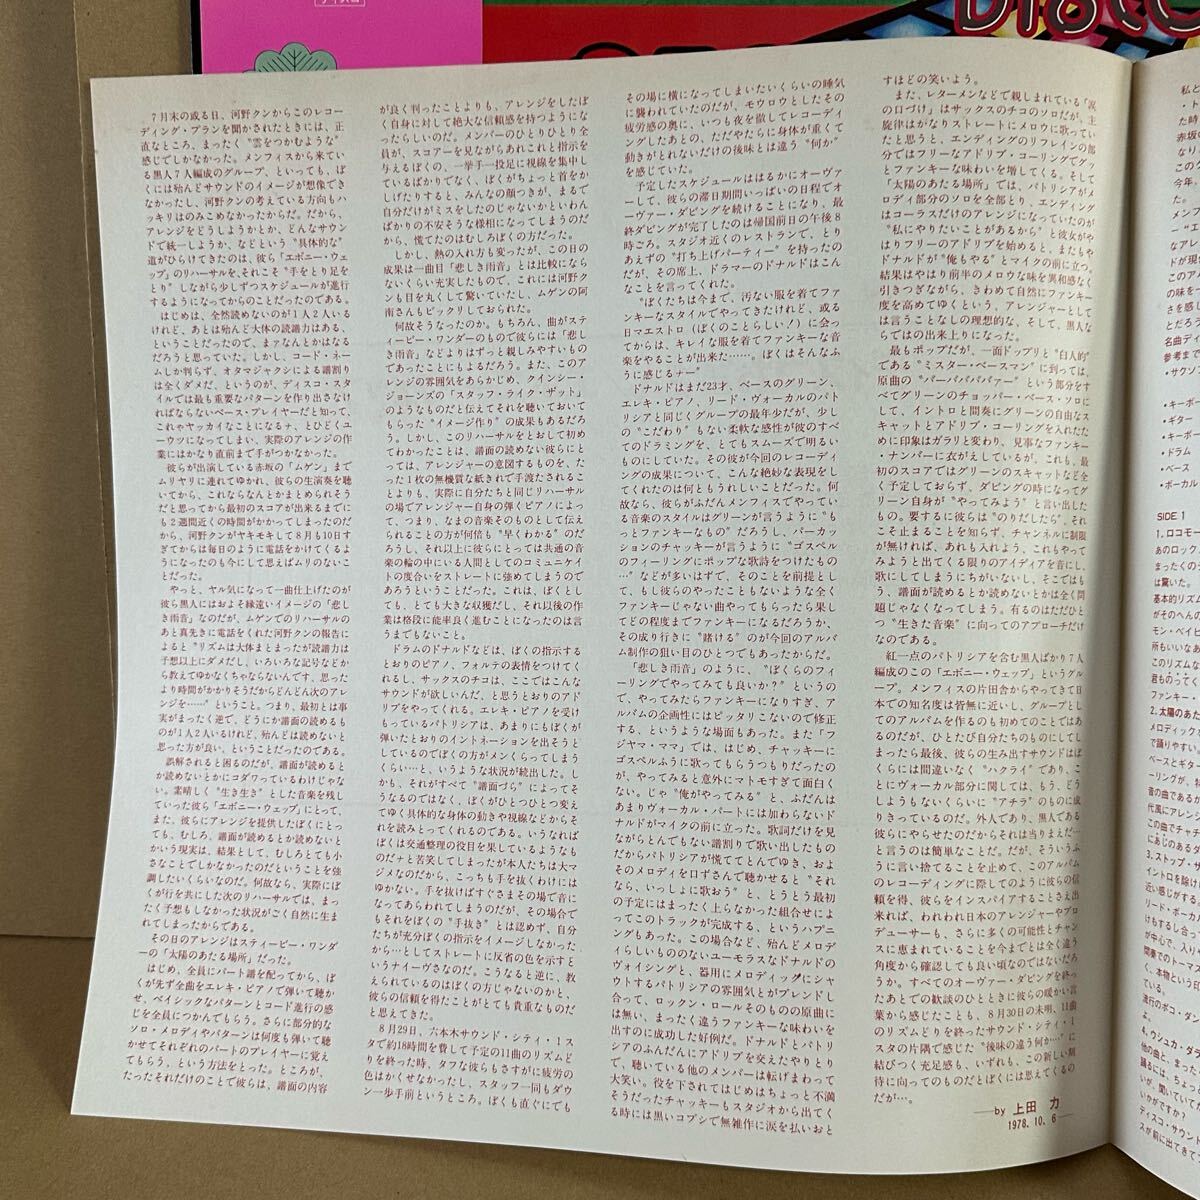 ディスコ
DISCO
7月末の或る日、河野クンからこのレコー
ディング・プランを聞かされたときには、正
直なところ、まったく“雲をつかむような”
感じでしかなかった。メンフィスから来てい
る黒人7人編成のグループ、といっても、ぼ
くには殆んどサウンドのイメージが想像でき
なかったし、河野クンの考えている方向もハ
ッキリはのみこめなかったからだ。だから、
アレンジをどうしようかとか、どんなサウン
ドで統一しようか、などという“具体的な”
道がひらけてきたのは、彼ら「エボニー・ウェ
ッブ」のリハーサルを、それこそ“手をとり足を
とり”しながら少しずつスケジュールが進行
するようになってからのことだったのである。
はじめは、全然読めないのが1人2人いる
けれど、あとは殆んど大体の読譜力はある、
ということだったので、まァなんとかはなる
だろうと思っていた。しかし、コード・ネー
ムしか判らず、オタマジャクシによる譜割り
は全くダメだ、というのが、ディスコ・スタ
イルでは最も重要なパターンを作り出さなけ
ればならないベース・プレイヤーだと知って、
これゃヤッカイなことになるナ、とひどくユ
ーウツになってしまい、実際のアレンジの作
業にはかなり直前まで手がつかなかった。
彼らが出演している赤坂の「ムゲン」まで
ムリヤリに連れてゆかれ、彼らの生演奏を聴
いてから、これならなんとかまとめられそう
だと思ってから最初のスコアが出来るまでに
も2週間近くの時間がかかってしまったのだ
から、河野クンがヤキモキして8月も10日す
ぎてからは毎日のように電話をかけてくるよ
うになったのも今にして思えばムリのないこ
とだった。
やっと、ヤル気になって一曲仕上げたのが
彼ら黒人にはおよそ縁遠いイメージの「悲し
き雨音」なのだが、ムゲンでのリハーサルの
あと真先きに電話をくれた河野クンの報告に
よると“リズムは大体まとまったが読譜力は
予想以上にダメだし、いろいろな記号などか
ら教えてゆかなくちゃならないんです、思った
より時間がかかりそうだからどんどん次のアレ
ンジを……”ということ。つまり、最初とは事
実がまったく逆で、どうにか譜面の読めるも
のが1人2人いるけれど、殆んどは読めないと
思った方が良い、ということだったのである。
誤解されると困るのだが、譜面が読めると
か読めないとかにコダワっているわけじゃな
い。素晴しく“生き生き”とした音楽を残し
ていった彼ら「エボニー・ウェッブ」にとって、
また、彼らにアレンジを提供したぼくにとっ
ても、むしろ、譜面が読めるとか読めないと
かいう現実は、結果として、むしろとても小
さなことでしかなかったのだということを強
調したいくらいなのだ。何故なら、実際にぼ
くが行を共にした次のリハーサルでは、まっ
たく予想もしなかった状況がごく自然に生ま
れてしまったからである。
その日のアレンジはスティービー・ワンダ
ーの「太陽のあたる場所」だった。
はじめ、全員にパート譜を配ってから、ぼ
くが先ず全曲をエレキ・ピアノで弾いて聴か
せ、ベイシックなパターンとコード進行の感
じを全員につかんでもらう。さらに部分的な
ソロ・メロディやパターンは何度も弾いて聴
かせてそれぞれのパートのプレイヤーに覚え
てもらう、という方法をとった。ところが、
たったそれだけのことで彼らは、譜面の内容
が良く判ったことよりも、アレンジをしたぼ
く自身に対して絶大な信頼感を持つようにな
ったらしいのだ。メンバーのひとりひとり全
員が、スコアーを見ながらあれこれと指示を
与えるぼくの、一挙手一投足に視線を集中し
ているばかりでなく、ぼくがちょっと首をか
しげたりすると、みんなの顔つきが、まるで
自分だけがミスをしたのじゃないかといわん
ばかりの不安そうな様相になってしまうのだ
から、慌てたのはむしろぼくの方だった。
しかし、熱の入れ方も変ったが、この日の
成果は一曲目「悲しき雨音」とは比較になら
ないくらい充実したもので、これには河野クン
も目を丸くして驚いていたし、ムゲンの阿
南さんもビックリしておられた。
何故そうなったのか。もちろん、曲がステ
ィービー・ワンダーのもので彼らには「悲し
き雨音」などよりはずっと親しみやすいもの
であったことにもよるだろう。また、このア
レンジの雰囲気をあらかじめ、クインシー・
ジョーンズの「スタッフ・ライク・ザット」
のようなものだと伝えてそれを聴いておいて
もらった“イメージ作り”の成果もあるだろ
う。しかし、このリハーサルをとおして初め
てわかったことは、譜面の読めない彼らにと
っては、アレンジャーの意図するものを、た
った1枚の無機質な紙きれで手渡たされるこ
とよりも、実際に自分たちと同じリハーサル
の場でアレンジャー自身の弾くピアノによっ
て、つまり、なまの音楽そのものとして伝え
られることの方が何倍も“早くわかる”のだ
ろうし、それ以上に彼らにとっては共通の音
楽の輪の中にいる人間としてのコミュニケイ
トの度合いをストレートに強めてしまうので
あろうということだった。これは、ぼくとし
ても、とても大きな収穫だし、それ以後の作
業は格段に能率良く進むことになったのは言
うまでもないこと。
ドラムのドナルドなどは、ぼくの指示する
とおりのピアノ、フォルテの表情をつけてく
れるし、サックスのチコは、ここではこんな
サウンドが欲しいんだ、と思うとおりのアド
リブをやってくれる。エレキ・ピアノを受け
もっているパトリシアは、あまりにもぼくが
弾いたとおりのイントネーションを出そうと
しているのでぼくの方がメンくらってしまう
くらい…と、いうような状況が続出した。し
かも、それがすべて“譜面づら”によってそ
うなるのではなく、ぼくがひとつひとつ変え
てゆく具体的な身体の動きや視線などからそ
れを読みとってくれるのである。いうなれば
ぼくは交通整理の役目を果しているようなも
のだナと苦笑してしまったが本人たちは大マ
ジメなのだから、こっちも手を抜くわけには
ゆかない。手を抜けばすぐさまその場で音に
なってあらわれてしまうのだが、その場合で
もそれをぼくの“手抜き”とは認めず、自分
たちが充分ぼくの指示をイメージしなかった
から…としてストレートに反省の色を示すと
いうナイーヴさなのだ。こうなると逆に、教
えられているのはぼくの方じゃないのかと、
彼らの信頼を得たことがとても貴重なものだ
と思えてきた。
8月29日、六本木サウンド・シティ・1ス
タで約18時間を費して予定の11曲のリズムど
りを終った時、タフな彼らもさすがに疲労の
色はかくせなかったし、スタッフ一同もダウ
ン一歩手前というところ。ぼくも直ぐにでも
その場に横になってしまいたいくらいの睡気
に襲われていたのだが、モウロウとしたその
疲労感の奥に、いつも夜を徹してレコーディ
ングしたあとの、ただやたらに身体が重くて
動きがとれないだけの後味とは違う“何か”
を感じていた。
予定したスケジュールははるかにオーヴァ
ーして、彼らの滞日期間いっぱいの日程でオ
ーヴァー・ダビングを続けることになり、最
終ダビングが完了したのは帰国前日の午後8
時ごろ。スタジオ近くのレストランで、とり
あえずの“打ち上げパーティー”を持ったの
だが、その席上、ドラマーのドナルドはこん
なことを言ってくれた。
“ぼくたちは今まで、汚ない服を着てファ
ンキーなスタイルでやってきたけれど、或る
日マエストロ（ぼくのことらしい！）に会っ
てからは、キレイな服を着てファンキーな音
楽をやることが出来た……。ぼくはそんなふ
うに感じるナー”
ドナルドはまだ23才、ベースのグリーン、
エレキ・ピアノ、リード・ヴォーカルのパト
リシアと同じくグループの最年少だが、少し
の“こだわり”もない柔軟な感性が彼のすべ
てのドラミングを、とてもスムーズで明るい
ものにしていた。その彼が今回のレコーディ
ングの成果について、こんな絶妙な表現をし
てくれたのは何ともうれしいことだった。何
故なら、彼らがふだんメンフィスでやってい
る音楽のスタイルはグリーンが言うように“も
っとファンキーなもの”だろうし、パーカッ
ションのチャッキーが言うように“ゴスペル
のフィーリングにポップな歌詩をつけたもの
…”などが多いはずで、そのことを前提とし
て、もし彼らのやったこともないような全く
ファンキーじゃない曲やってもらったら果し
てどの程度までファンキーになるだろうか、
その成り行きに“賭ける”のが今回のアルバ
ム制作の狙い目のひとつでもあったからだ。
「悲しき雨音」のように、“ぼくらのフィー
リングでやってみても良いか？”というの
で、やってみたらファンキーになりすぎ、ア
ルバムの企画性にはピッタリこないので修正
する、というような場面もあった。また「フ
ジヤマ・ママ」では、はじめ、チャッキーに
ゴスペルふうに歌ってもらうつもりだったの
が、やってみると意外にマトモすぎて面白く
ない。じゃ“俺がやってみる”と、ふだんは
あまりヴォーカル・パートには加わらないド
ナルドがマイクの前に立った。歌詞だけを見
ながらとんでもない譜割りで歌い出したもの
だからパトリシアが慌ててとんでゆき、およ
そのメロディを口ずさんで聴かせると“それ
なら、いっしょに歌おう”と、とうとう最初
の予定にはまったく上らなかった組合せによ
ってこのトラックが完成する、というハプニ
ングもあった。この場合など、殆んどメロデ
ィらしいもののないユーモラスなドナルドの
ヴォイシングと、器用にメロディックにシャ
ウトするパトリシアの雰囲気とがブレンドし
合って、ロックン・ロールそのものの原曲に
は無い、まったく違うファンキーな味わいを
出すのに成功した好例だ。ドナルドとパトリ
シアのふんだんにアドリブを交えたやりとり
で、聴いている他のメンバーは転げまわって
大笑い。役を下されてはじめはちょっと不満
そうだったチャッキーもスタジオから出てく
る時には黒いコブシで無雑作に涙を払いおと
すほどの笑いよう。
また、レターメンなどで親しまれている「涙
の口づけ」はサックスのチコのソロだが、主
旋律はかなりストレートにメロウに歌ってい
たと思うと、エンディングのリフレインの部
分ではフリーなアドリブ・コーリングでグッ
とファンキーな味わいを増してくる。そして
「太陽のあたる場所」では、パトリシアがメ
ロディ部分のソロを全部とり、エンディング
はコーラスだけのアレンジになっていたのが
“私にやりたいことがあるから”と彼女がや
はりフリーのアドリブを始めると、またもや
ドナルドが“俺もやる”とマイクの前に立つ。
結果はやはり前半のメロウな味を異和感なく
引きつぎながら、きわめて自然にファンキー
度を高めてゆくという、アレンジャーとして
は言うことなしの理想的な、そして、黒人な
らではの出来上りになった。
最もポップだが、一面ドップリと“白人的”
である「ミスター・ベースマン」に到っては、
原曲の“パーパパパパァー”という部分をす
べてグリーンのチョッパー・ベース・ソロに
して、イントロと間奏にグリーンの自由なス
キャットとアドリブ・コーリングを入れたた
めに印象はガラリと変わり、見事なファンキー
・ナンバーに衣がえしているが、これも、最
初のスコアではグリーンのスキャットなど全
く予定しておらず、ダビングの時になってグ
リーン自身が“やってみよう”と言い出した
もの。要するに彼らは“のりだしたら”、それ
こそ止まることを知らず、チャンネルに制限
が無ければ、あれも入れよう、これもやって
みようと出てくる限りのアイディアを音にし、
歌にしてしまうにちがいないし、そこではも
う、譜面が読めるとか読めないとかは全く問
題じゃなくなってしまう。有るのはただひと
つ“生きた音楽”に向ってのアプローチだけ
なのである。
紅一点のパトリシアを含む黒人ばかり7人
編成のこの「エボニー・ウェッブ」というグル
ープ。メンフィスの片田舎からやってきて日
本での知名度は皆無に近いし、グループとし
てのアルバムを作るのも初めてのことではあ
るのだが、ひとたび自分たちのものにしてし
まったら最後、彼らの生み出すサウンドはぼ
くらには間違いなく“ハクライ”であり、こ
とにヴォーカル部分に関しては、もう、どう
しようもないくらいに“アチラ”のものに成
りきっているのだ。外人であり、黒人である
彼らにやらせたのだからそれは当りまえだ…
と言うのは簡単なことだ。だが、そういうふ
うに言い捨てることを止めて、このアルバム
のレコーディングに際してのように彼らの信
頼を得、彼らをインスパイアすることさえ出
来れば、われわれ日本のアレンジャーやプロ
デューサーも、さらに多くの可能性とチャン
スに恵まれていることを今までとは全く違う
角度から確認しても良い頃なのではないだろ
うか。すべてのオーヴァー・ダビングを終っ
たあとでの歓談のひとときに彼らの暖かい言
葉から感じたことも、8月30日の未明、11曲
のリズムどりを終ったサウンド・シティ・1
スタの片隅で感じた“後味の違う何か…”に
結びつく充足感も、いずれも、この新しい期
待に向ってのものだとぼくには思えてくるの
だが…。
—by 上田 力
1978. 10. 6—
SIDE 1